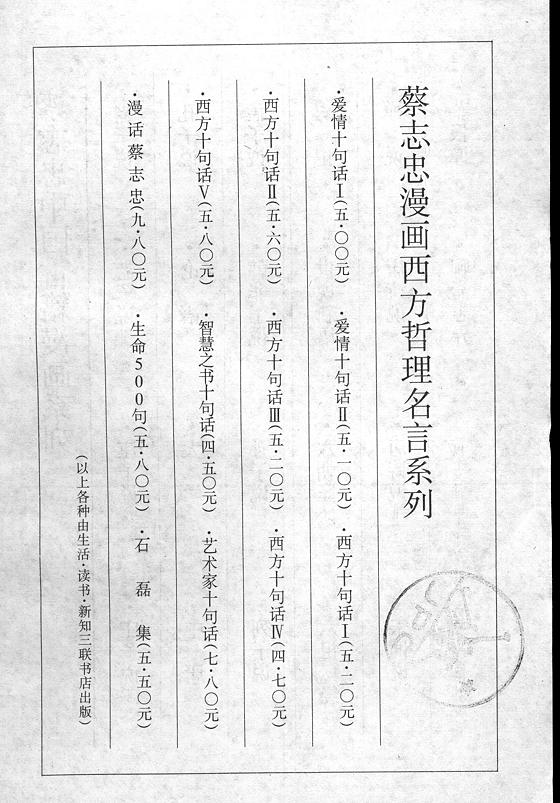 蔡志忠漫画西方哲理名言系列
·爱情十句话Ⅰ(五·〇〇元) ·爱情十句话Ⅱ(五·一〇元) ·西方十句话Ⅰ(五·二〇元)
·西方十句话Ⅱ(五·六〇元) ·西方十句话Ⅲ(五·二〇元) ·西方十句话Ⅳ(四·七〇元)
·西方十句话Ⅴ(五·八〇元) ·智慧之书十句话(四·五〇元) ·艺术家十句话(七·八〇元)
·漫话蔡志忠(九·八〇元) ·生命500句(五·八〇元) ·石磊集(五·五〇元)
(以上各种由生活·读书·新知三联书店出版)